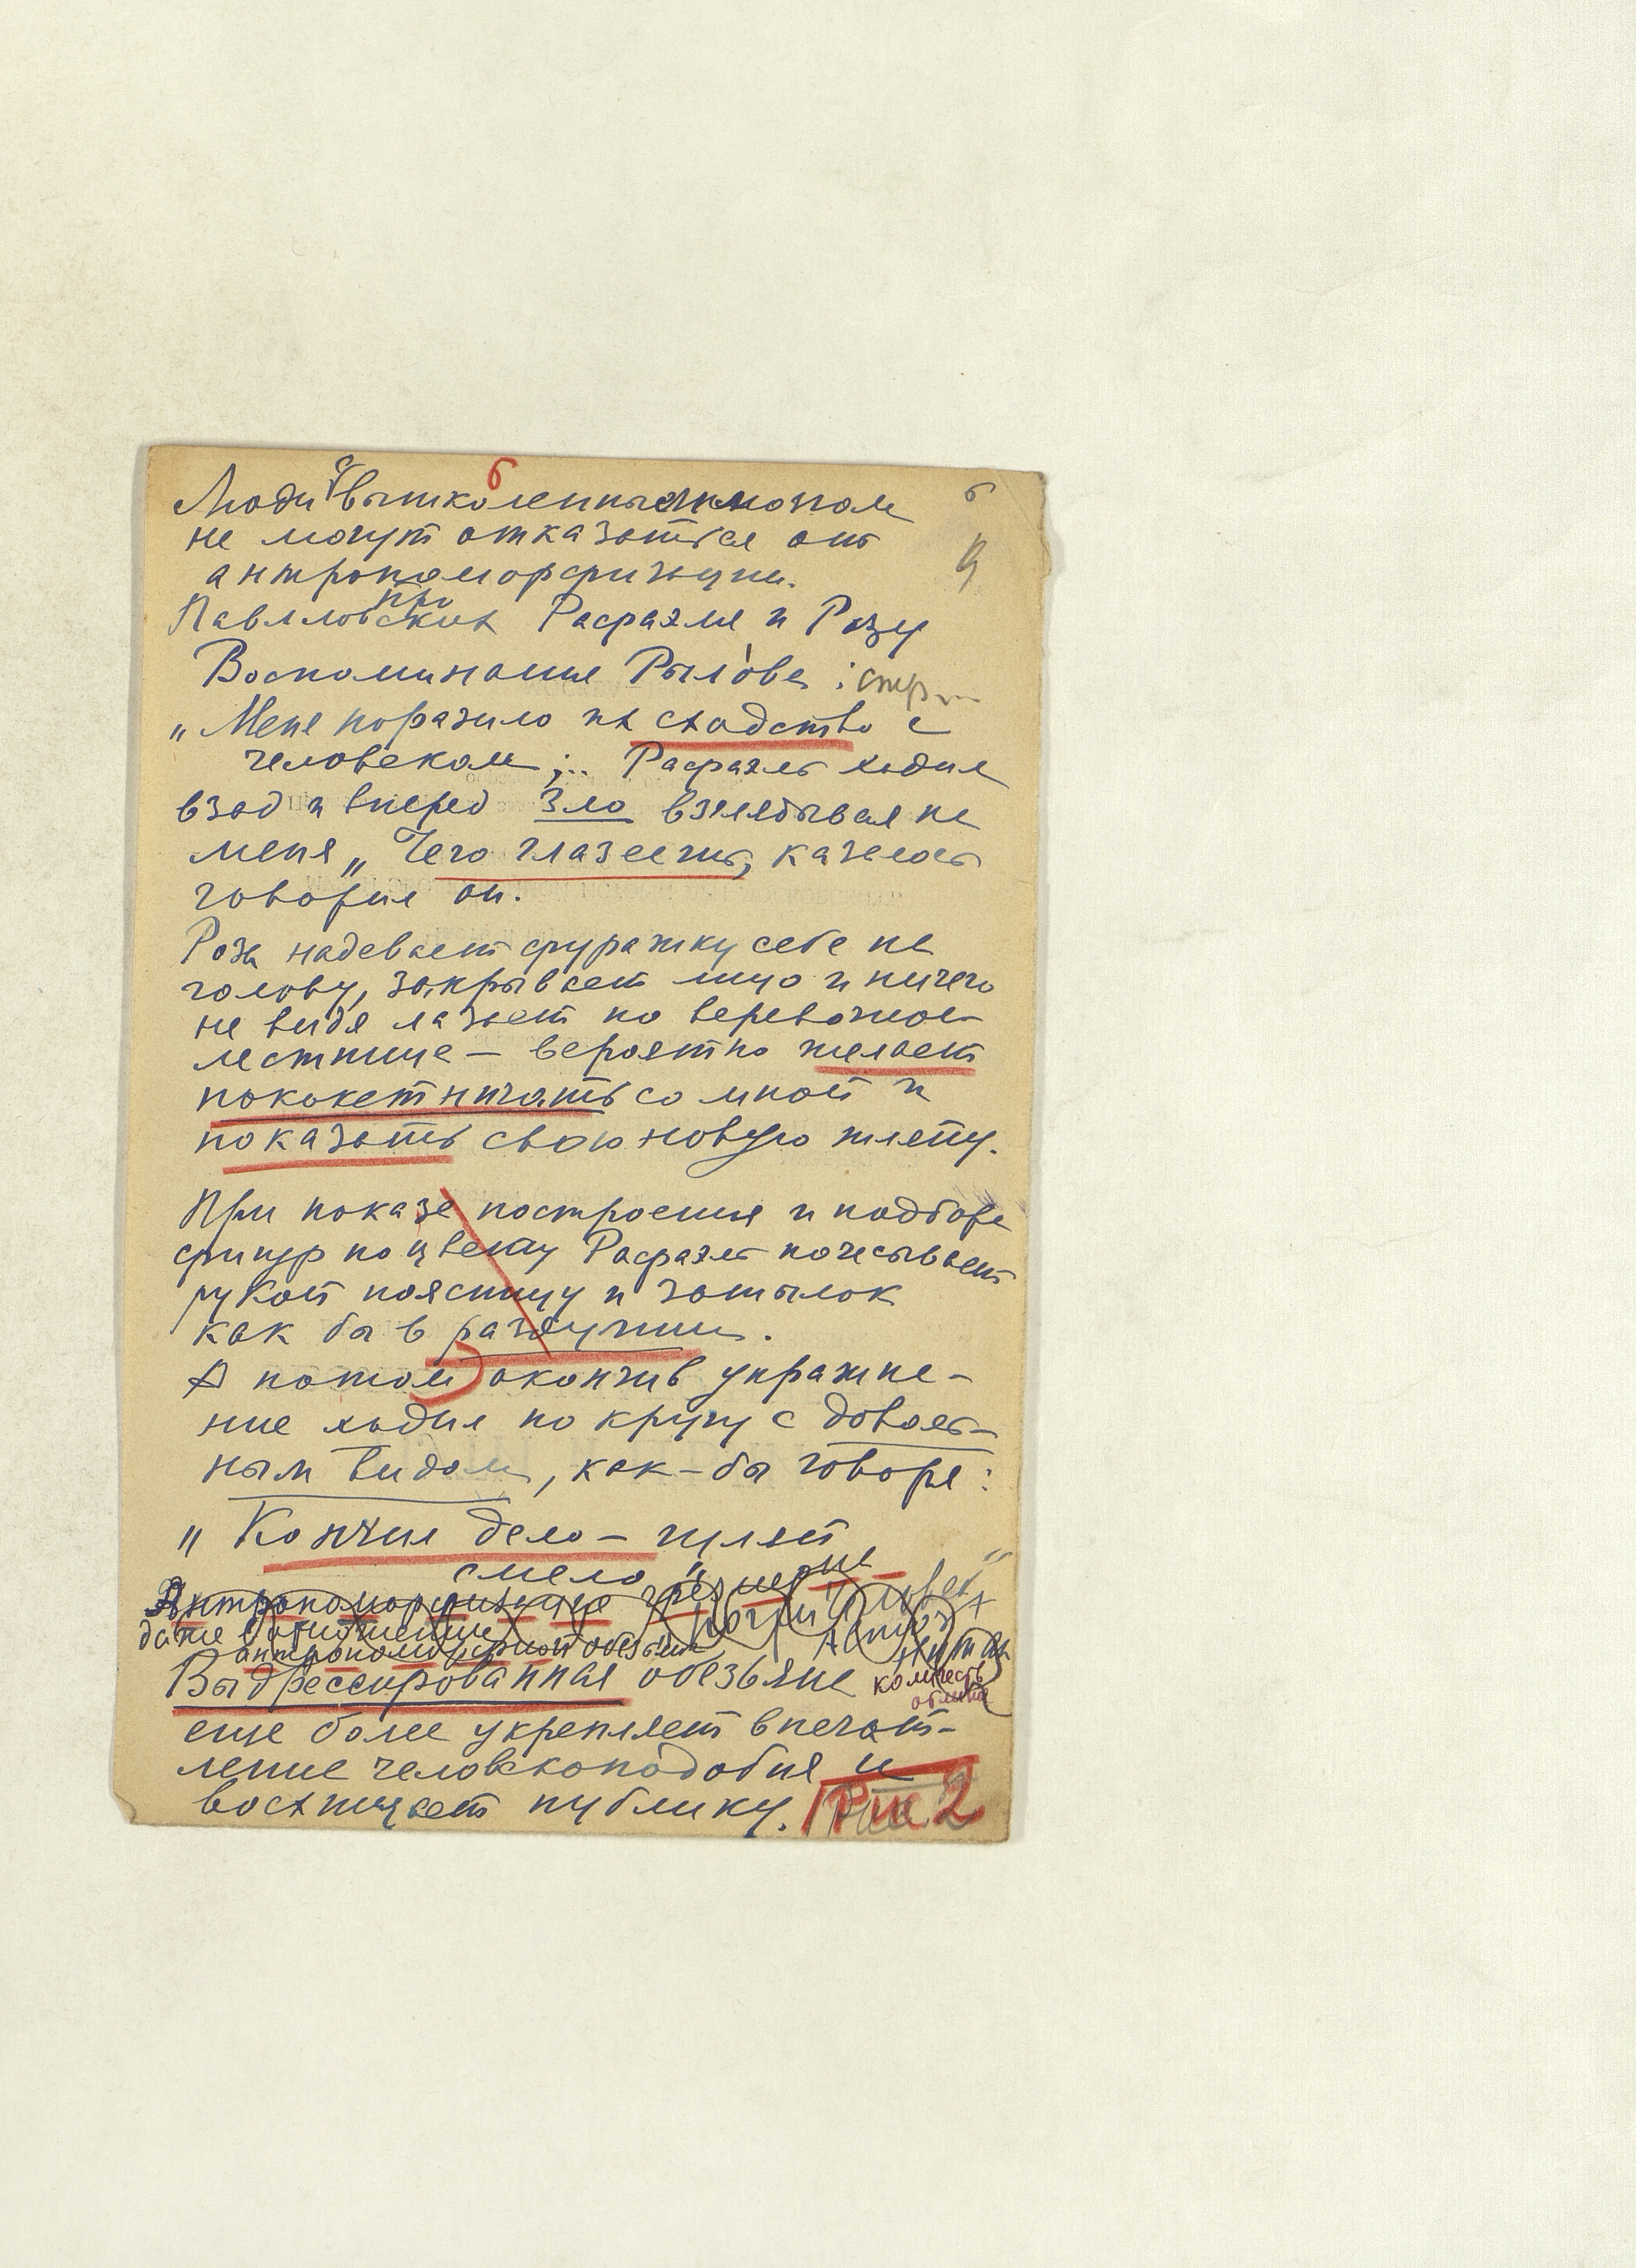 б
Люди с вышколенным
б
не могут отказаться от
9
антропоморфизации.
про
Павловских Рафаэля и Розу
Воспоминание Рылова: стр...
„Меня поразило их сходство с
человеком;.. Рафаэль ходил
взад и вперед зло взглядывая на
меня „Чего глазеешь, казалось
говорил он.
Роза надевает фуражку себе на
голову, закрывает лицо и ничего
не видя лазает по веревочной
лестнице — вероятно желает
пококетничать со мной и
показать свою новую шляпу.
При показе построения и подбора
фигур по цвету Рафаэль почесывает
рукой поясницу и затылок
как бы в раздумии.
А потом окончив упражне-
ние ходил по кругу с доволь-
ным видом, как-бы говоря:
„Кончил дело — гуляй
смело"
Антропоморфизация чрезмерне
даже в отношении
антропоморфной обезьяны
Выдрессированная обезьяна
еще более укрепляет впечат-
ление человекоподобия и
восхищает публику. Рис 2